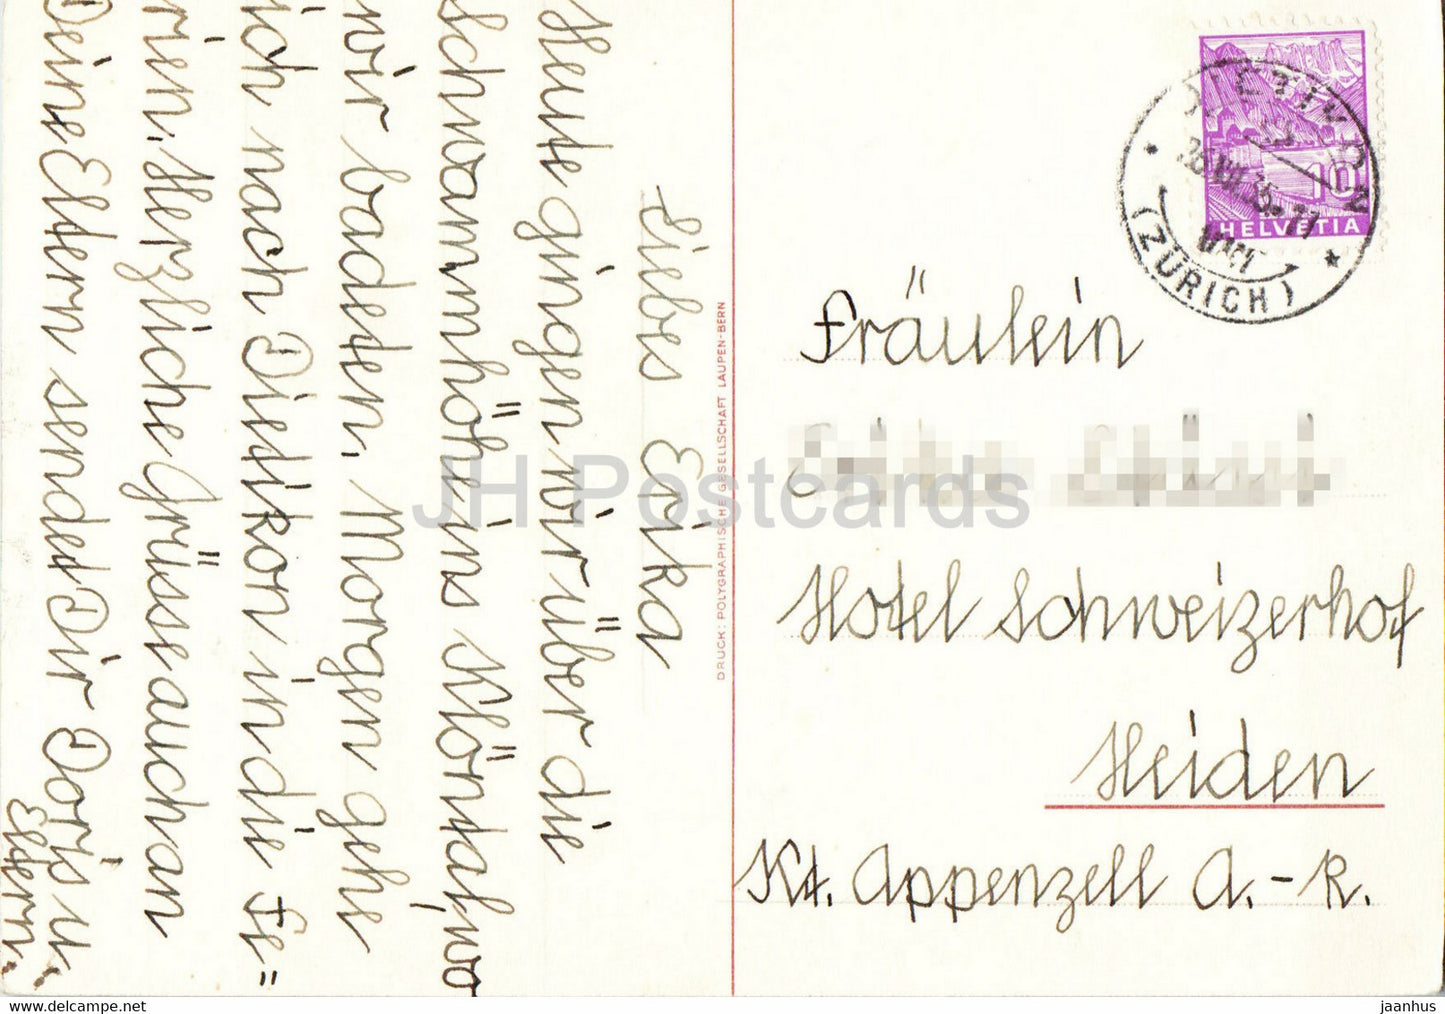 Liebes Erika
Heute gingen wir über die
Schwammhöhe ins Klöntal, wo
wir badeten. Morgen gehe
ich nach Dietikon in die Fe=
rien. Herzliche Grüsse auch an
Deine Eltern sendet Dir Doris u.
Eltern.
DRUCK: POLYGRAPHISCHE GESELLSCHAFT LAUPEN-BERN
10
HELVETIA
DIETIKON
(ZÜRICH)
Fräulein
Hotel Schweizerhof
Heiden
Kt. Appenzell A.-R.
JH Postcards
www.delcampe.net
jaanhus